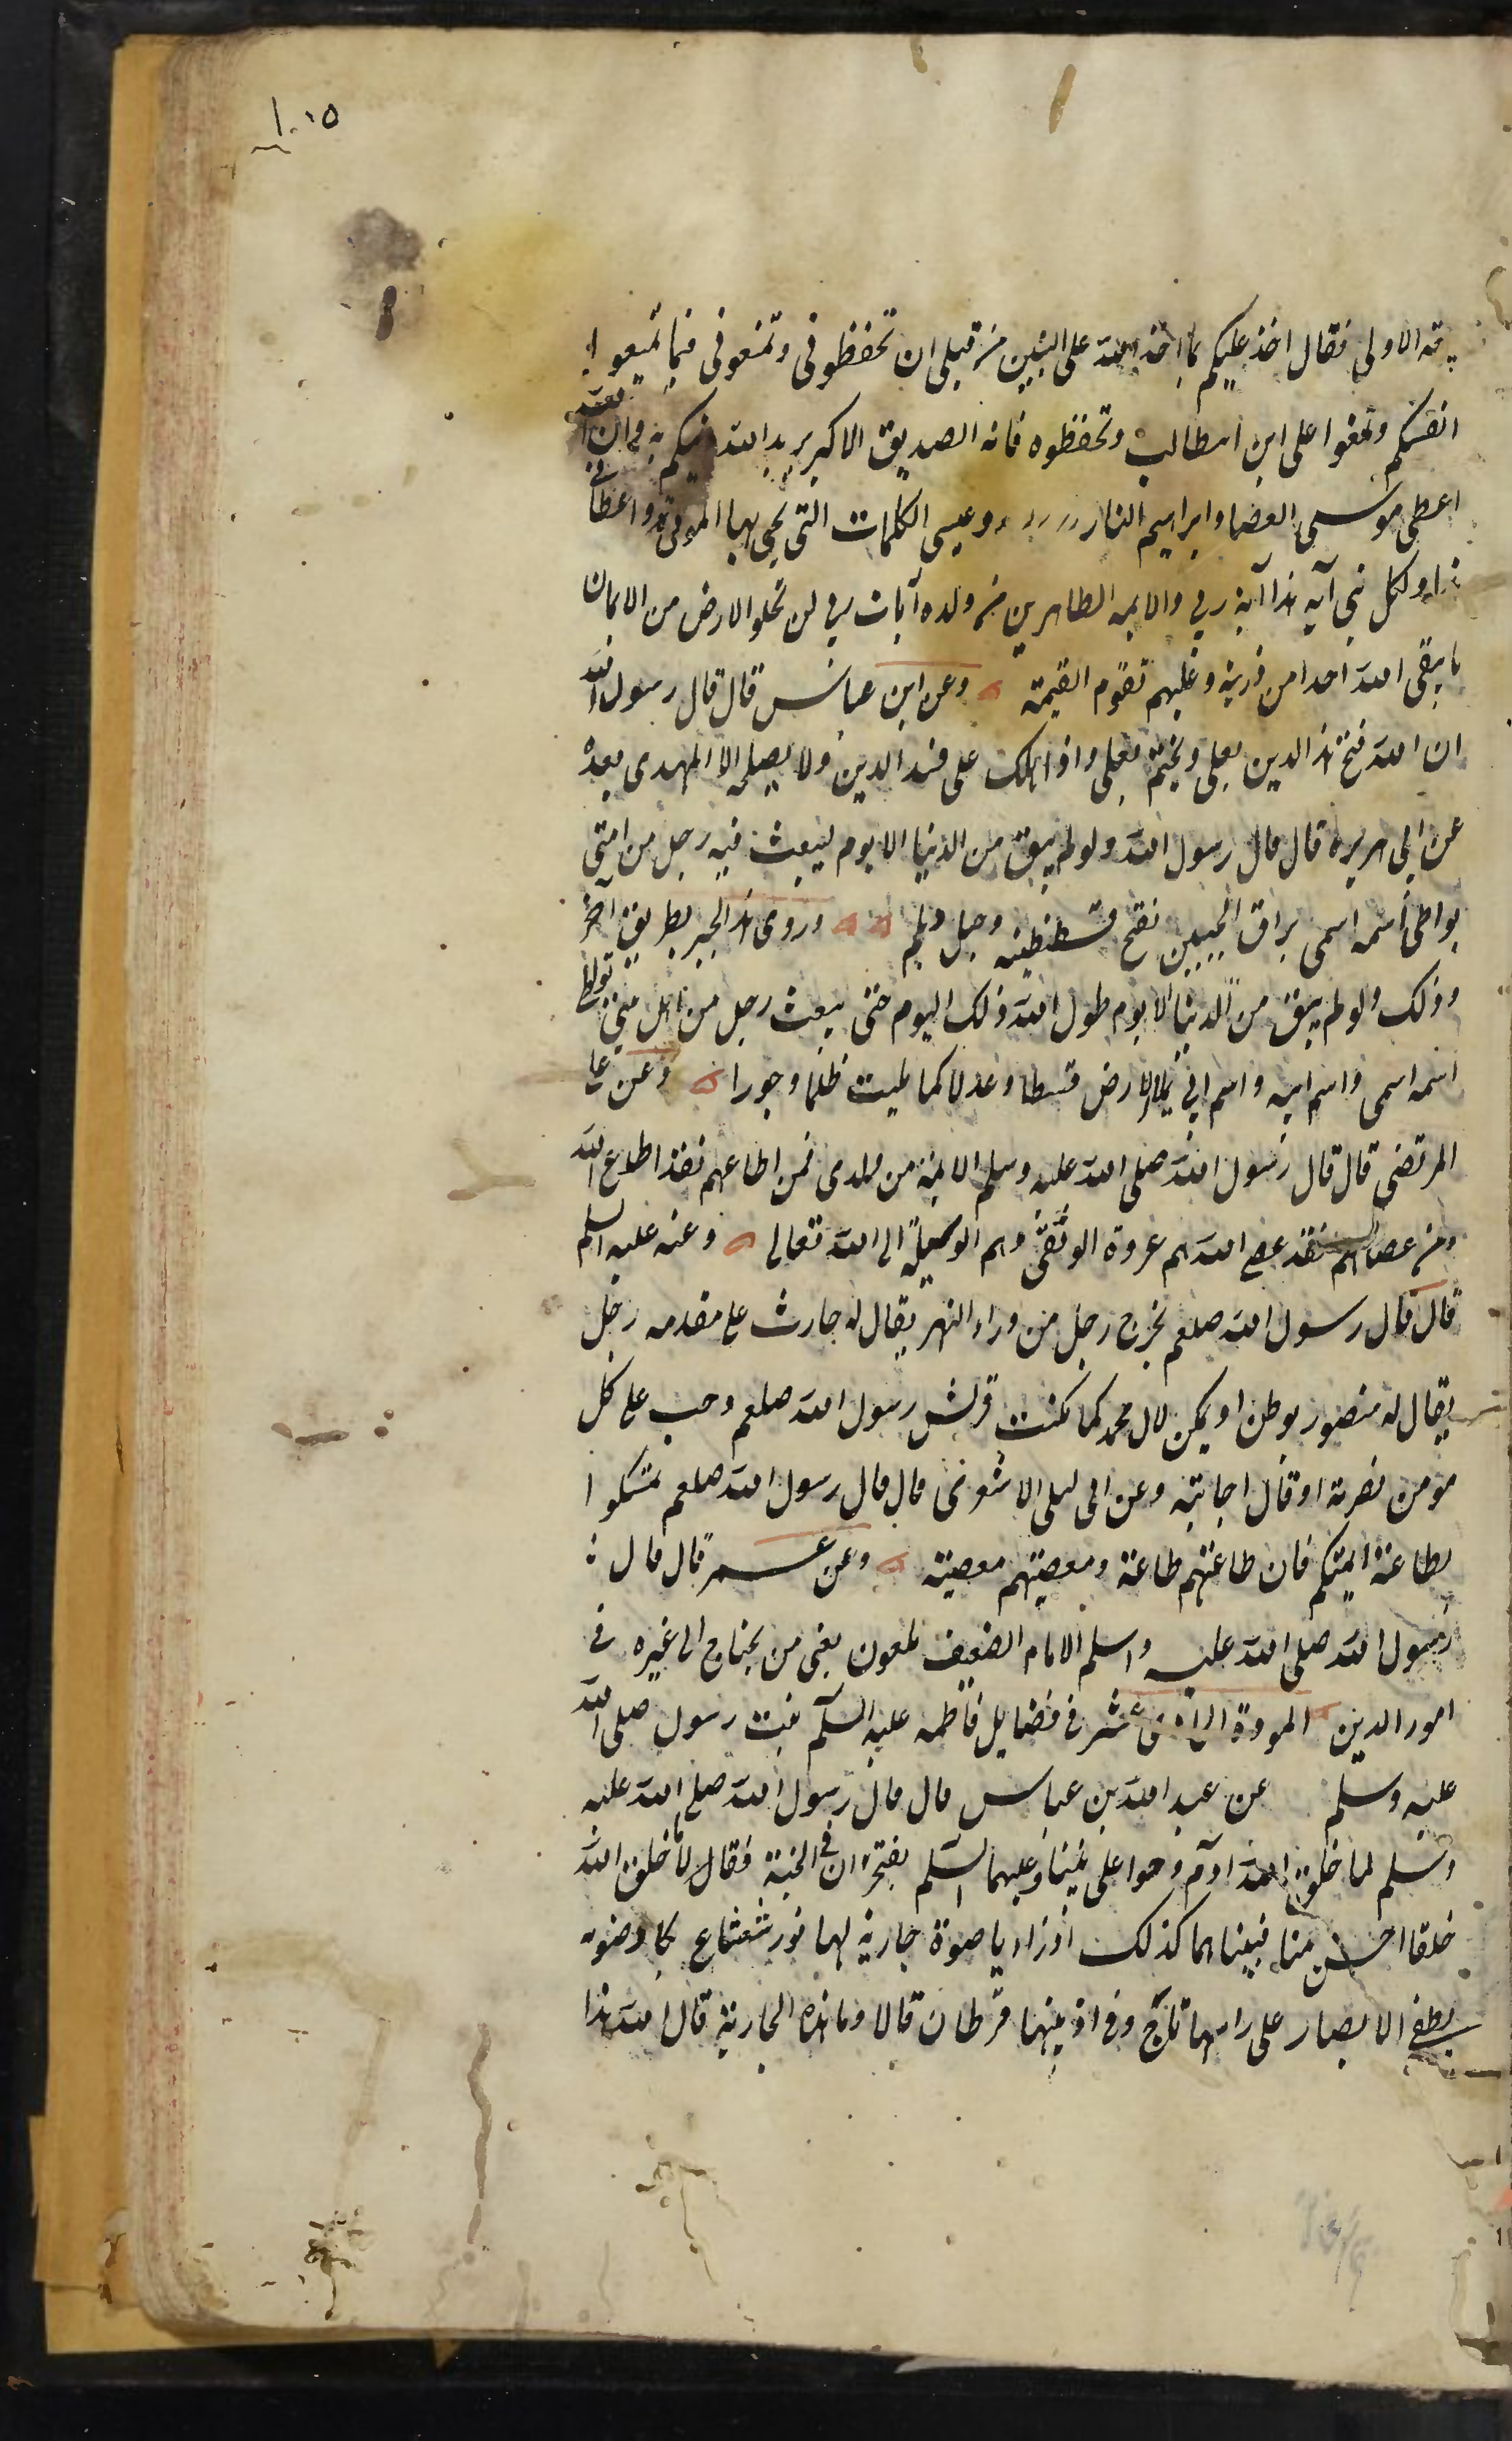 ١٠١٥
الاولى فقال اخذ عليكم بما اخذ الله على النبيين من قبلى ان تحفظونى وتمنعونى فيما تمنعوا
انفسكم وتمنعوا على ابن ابيطالب وتحفظوه فانه الصديق الاكبر يريد الله به وان الله
اعطى موسى العصا وابراهيم النار وعيسى الكلمات التى يحيى بها الموتى واعطانى
هذا ولكل نبى آيه هذا آية ربى والايمه الطاهرين من ولده آيات ربى لن تخلو الارض من الايمان
ما يبقى الله احدا من ذريته وعليهم تقوم القيمة وعن ابن عباس قال قال رسول الله
ان الله فتح هذا الدين بعلى ويختم بعلى واذا هلك على فسد الدين ولا يصلحه الا المهدى بعده
عن ابى هريره قال قال رسول الله ولو لم يبق من الدنيا الا يوم ليبعث فيه رجل من امتى
يواطى اسمه اسمى براق الجبين نفتح قسطنطنيه وجبل ديلم وروى هذا الخبر بطريق آخر
وذلك ولو لم يبق من الدنيا الا يوم طول الله ذلك اليوم حتى يبعث رجل من اهل بيتى يواطى
اسمه اسمى واسم ابيه واسم ابى يملا الارض قسطا وعدلا كما مليت ظلما وجورا وعن على
المرتضى قال قال رسول الله صلى الله عليه وسلم الايمة من ولدى فمن اطاعهم فقد اطاع الله
ومن عصاهم فقد عصى الله هم عروة الوثقى وهم الوسيلة الى الله تعالى وعنه عليه السلم
قال قال رسول الله صلعم يخرج رجل من وراء النهر يقال له حارث على مقدمه رجل
يقال له منصور يوطن او يمكن لال محمد كما مكنت قريش رسول الله صلعم وجب على كل
مومن نصرته او قال اجابته وعن ابى ليلى الاشعرى قال قال رسول الله صلعم تمسكوا
بطاعة ايمتكم فان طاعتهم طاعة ومعصيتهم معصيته وعن عمر قال قال
رسول الله صلى الله عليه وسلم الامام الضعيف ملعون يعنى من يحتاج الى غيره فى
امور الدين المودة عشر فى فضايل فاطمه عليه السلم بنت رسول صلى الله
عليه وسلم عن عبد الله بن عباس قال قال رسول الله صلى الله عليه
وسلم لما خلق الله آدم وحوا على نبينا وعليهما السلم يفتخران فى الجنة فقال ما خلق الله
خلقا احسن منا فبينا هما كذلك اذ راء يا صورة جارية لها نور شعشاع يكاد ضوءه
يطفى الابصار على راسها تاج وفى اذنيها قرطان قالا وما هذه الجارية قال الله هذا